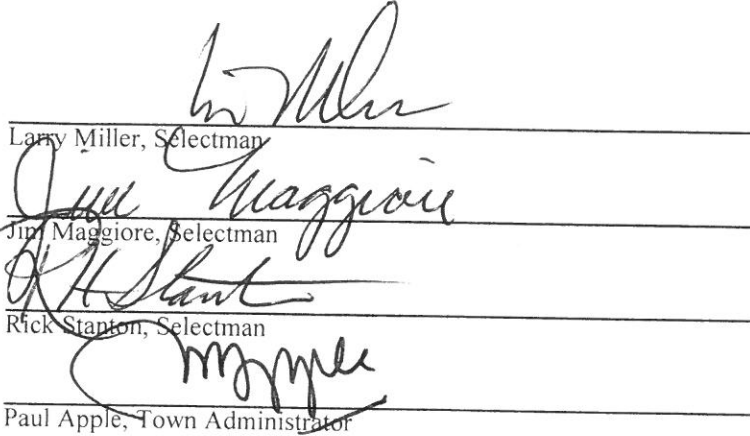 Larry Miller, Selectman
Jim Maggiore
Jim Maggiore, Selectman
R H Stanton
Rick Stanton, Selectman
Paul Apple, Town Administrator